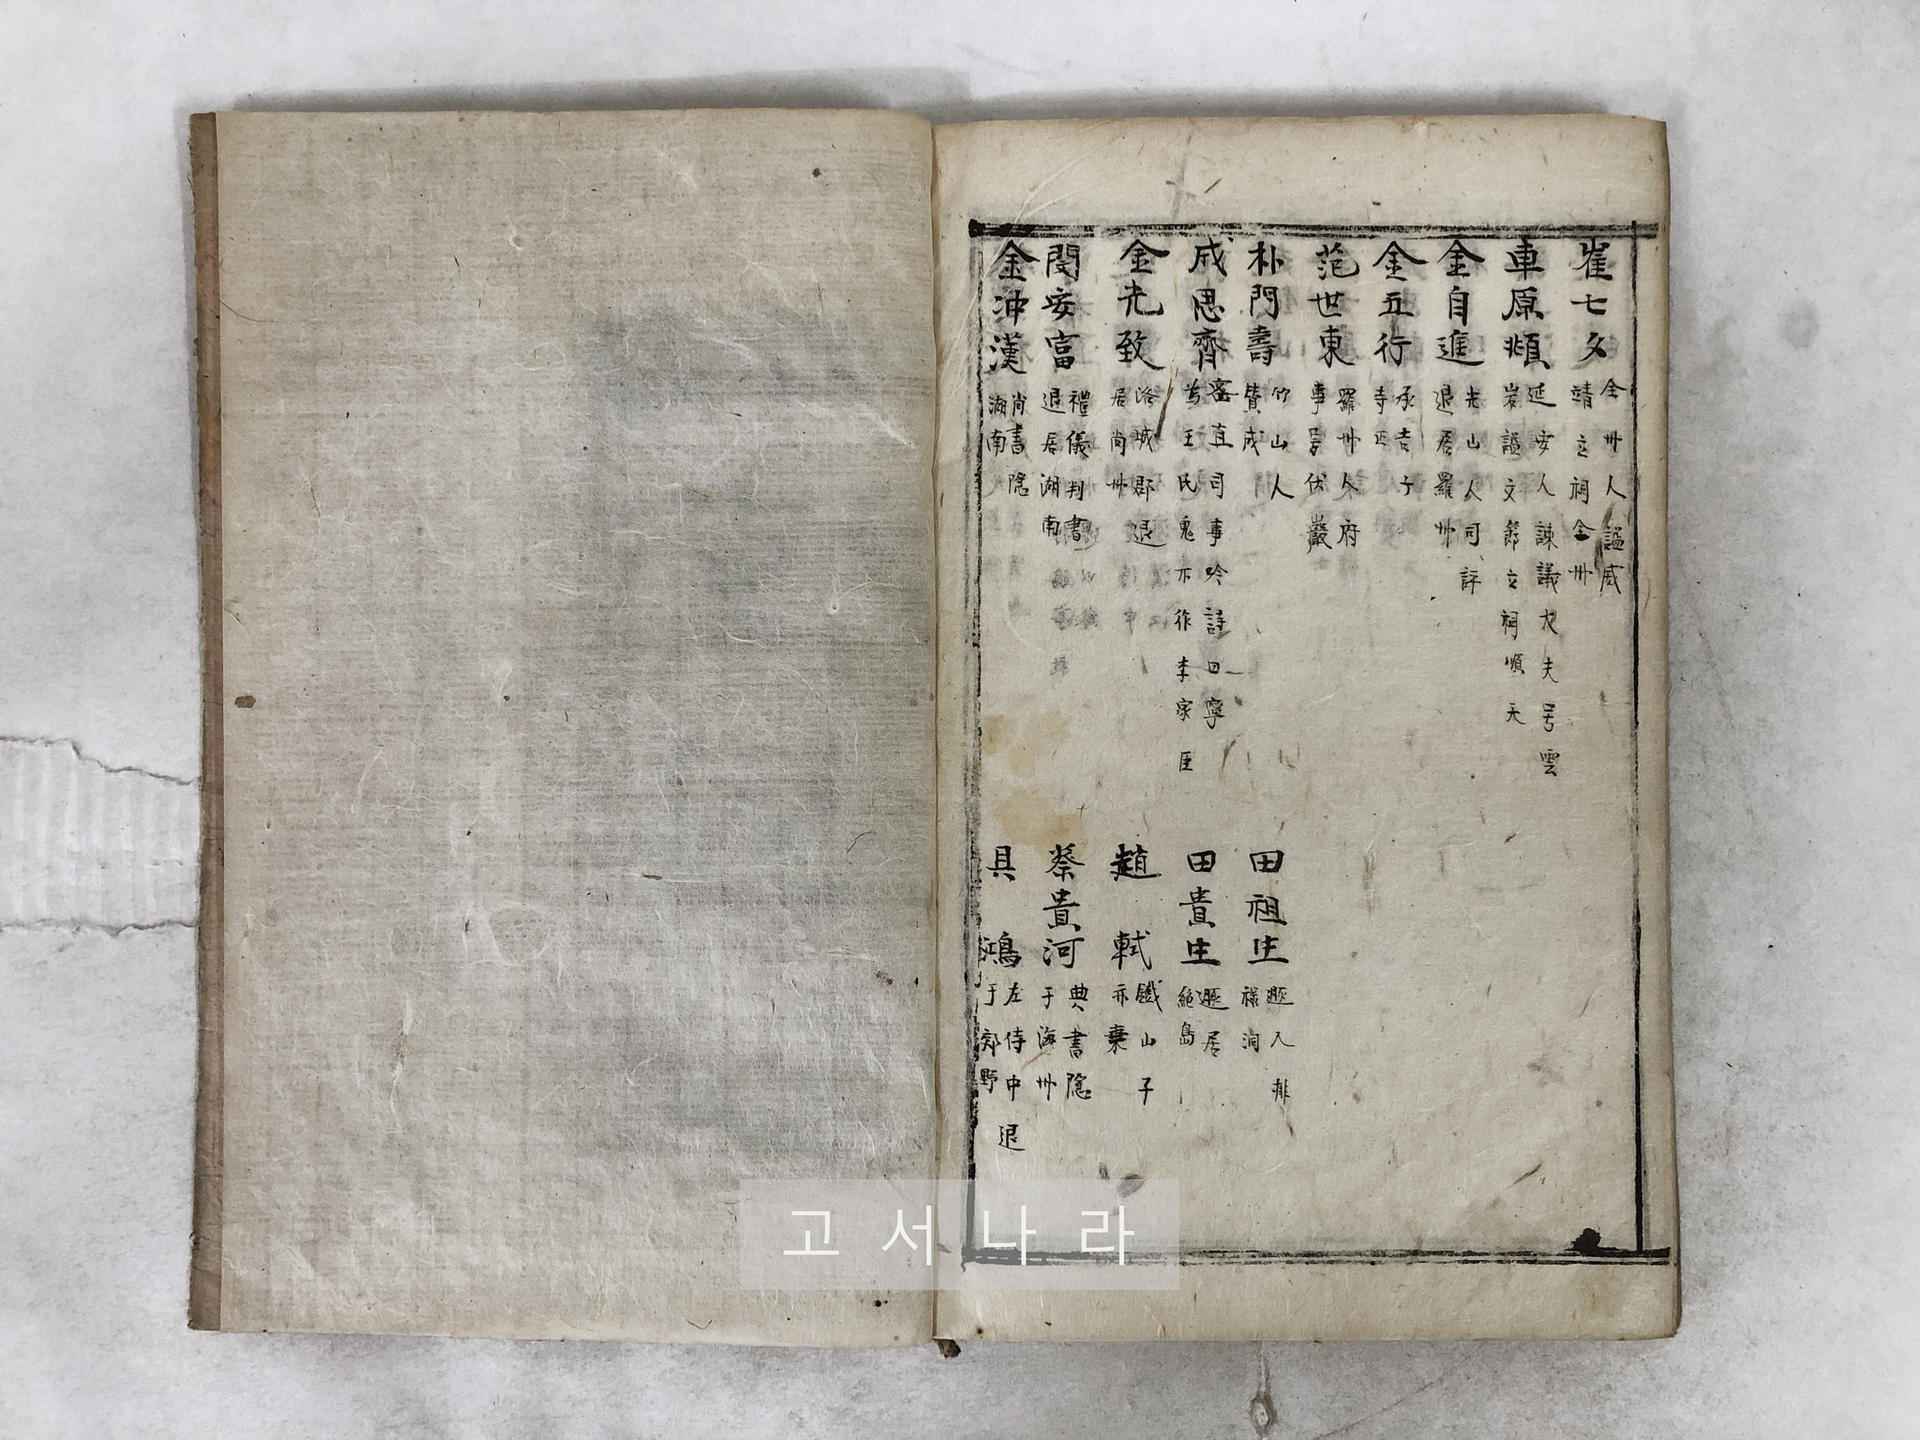 崔七夕 全州人謚威靖立祠全州
車原頫 延安人諫議大夫号雲岩謚文節立祠順天
金自進 光山人司評退居羅州
金五行 承吉子寺正
范世東 羅州人府事号伏巖
朴門壽 竹山人贊成
成思齊 密直司事吟詩曰寧爲王氏鬼不作李家臣
金光致 洛城郡退居尙州
閔安富 禮儀判書退居湖南
金沖漢 尙書隱湖南
田祖生 遯入排祿洞
田貴生 遯居絶島
趙軾 鐵山子亦棄
蔡貴河 典書隱于海州
具鴻 左侍中退于郊野
고서나라